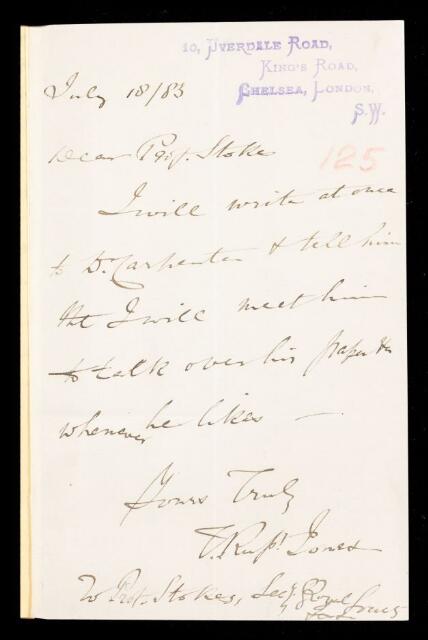 10, Uverdale Road,
King's Road,
Chelsea, London,
S.W.
July 18/83
125
Dear Prof. Stoke
I will write at once
to Dr. Carpenter & tell him
tht I will meet him
to talk over his paper &c
whenever he likes —
Yours Truly
T. Rupt. Jones
To Prof. Stokes, Secy. Royal
Society